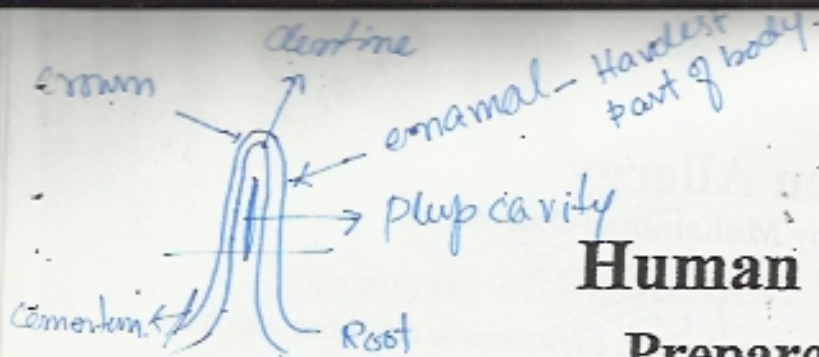 dentine
crown
enamal - Hardest
part of body.
plup cavity
Human
cementum
Root
Prepare